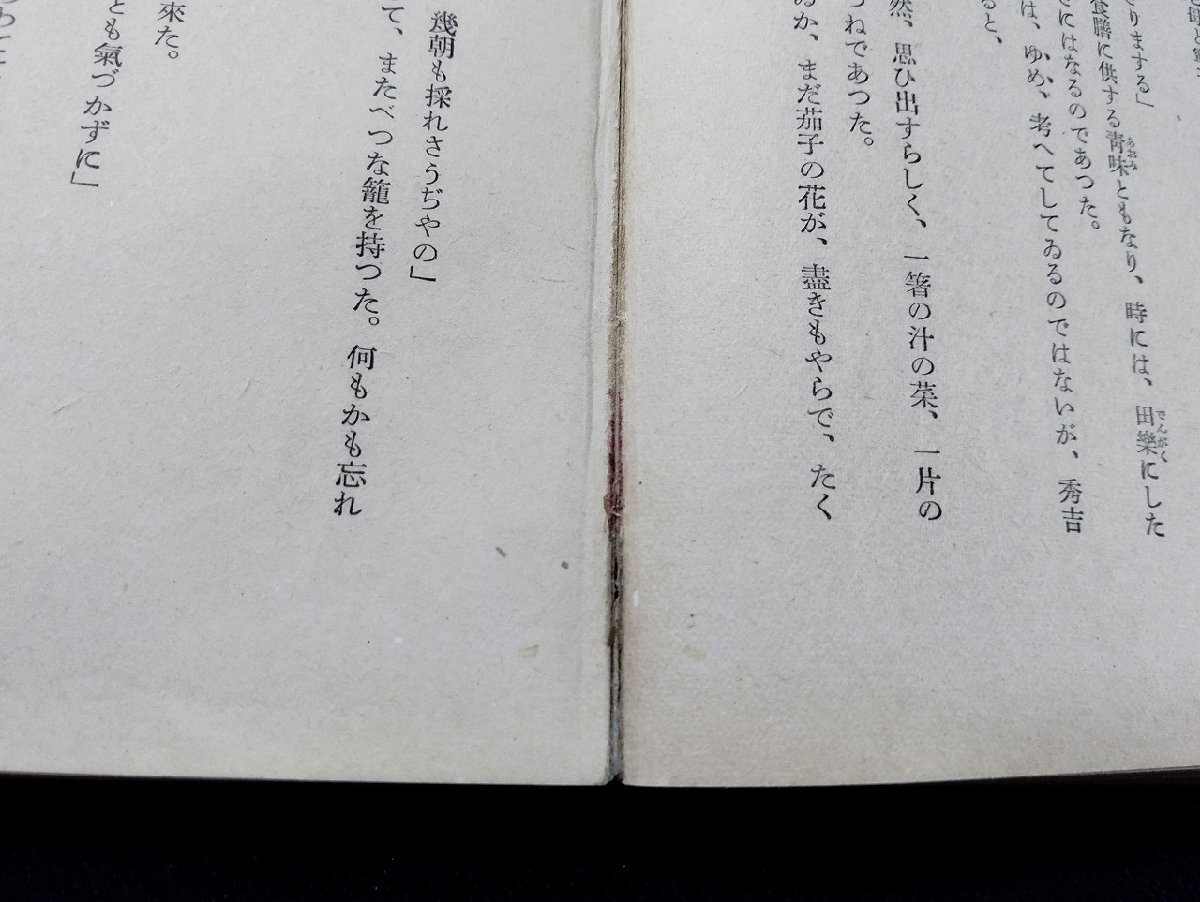 ざりまする」
食膳に供する青味ともなり、時には、田樂にした
あをみ
でんがく
にはなるのであつた。
は、ゆめ、考へてしてゐるのではないが、秀吉
ると、
然、思ひ出すらしく、一箸の汁の菜、一片の
つねであつた。
か、まだ茄子の花が、盡きもやらで、たく
幾朝も採れさうぢやの」
て、またべつな籠を持つた。何もかも忘れ
來た。
とも氣づかずに」